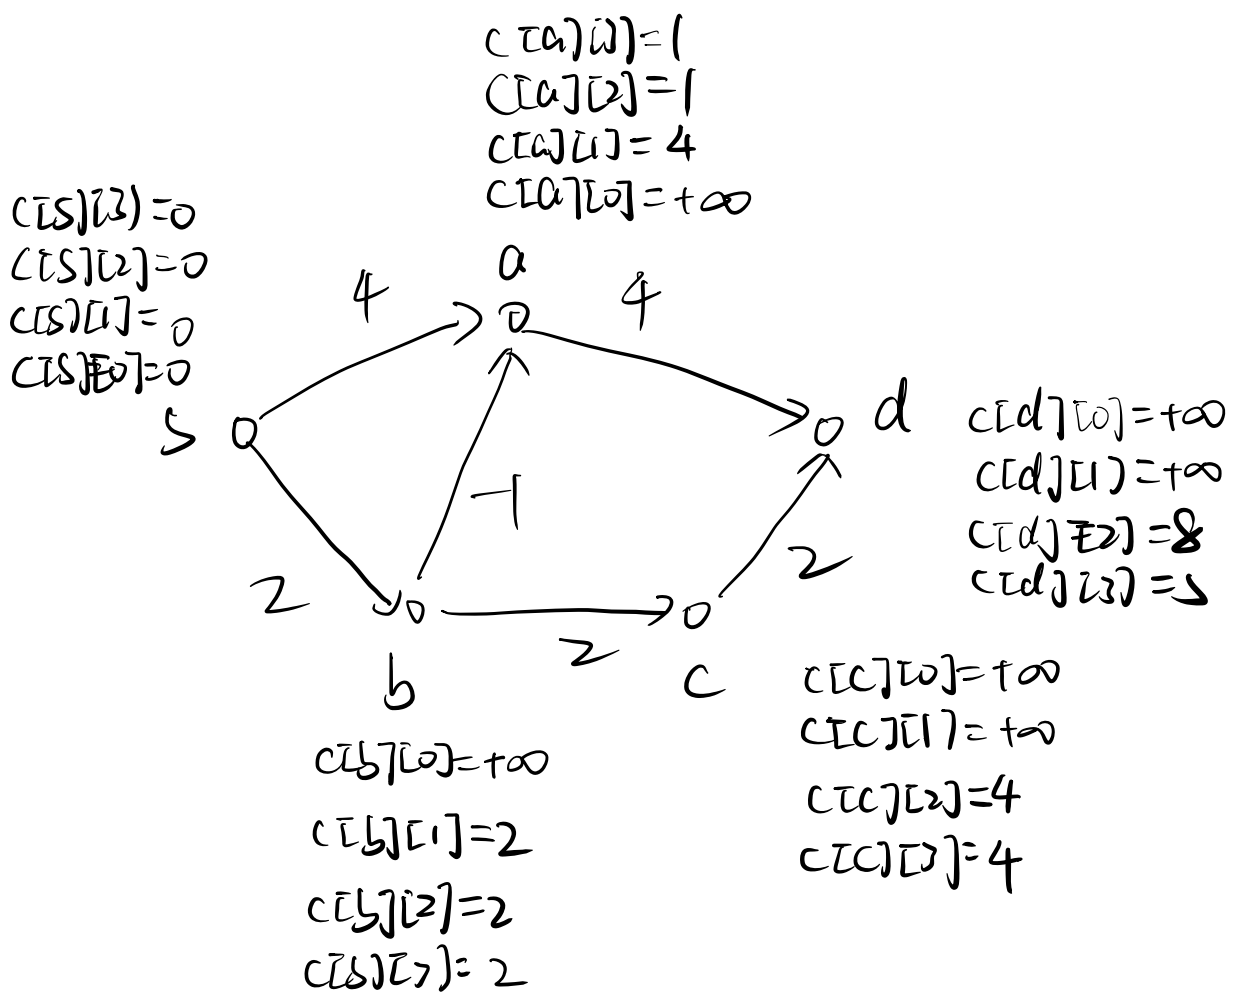 C[a][3]=1
C[a][2]=1
C[a][1]=4
C[a][0]=+∞
C[S][3]=0
C[S][2]=0
C[S][1]=0
C[S][0]=0
a
4
4
s
d
C[d][0]=+∞
C[d][1]=+∞
C[d][2]=8
C[d][3]=5
-1
2
2
2
b
c
C[C][0]=+∞
C[C][1]=+∞
C[C][2]=4
C[C][3]=4
C[b][0]=+∞
C[b][1]=2
C[b][2]=2
C[b][3]=2